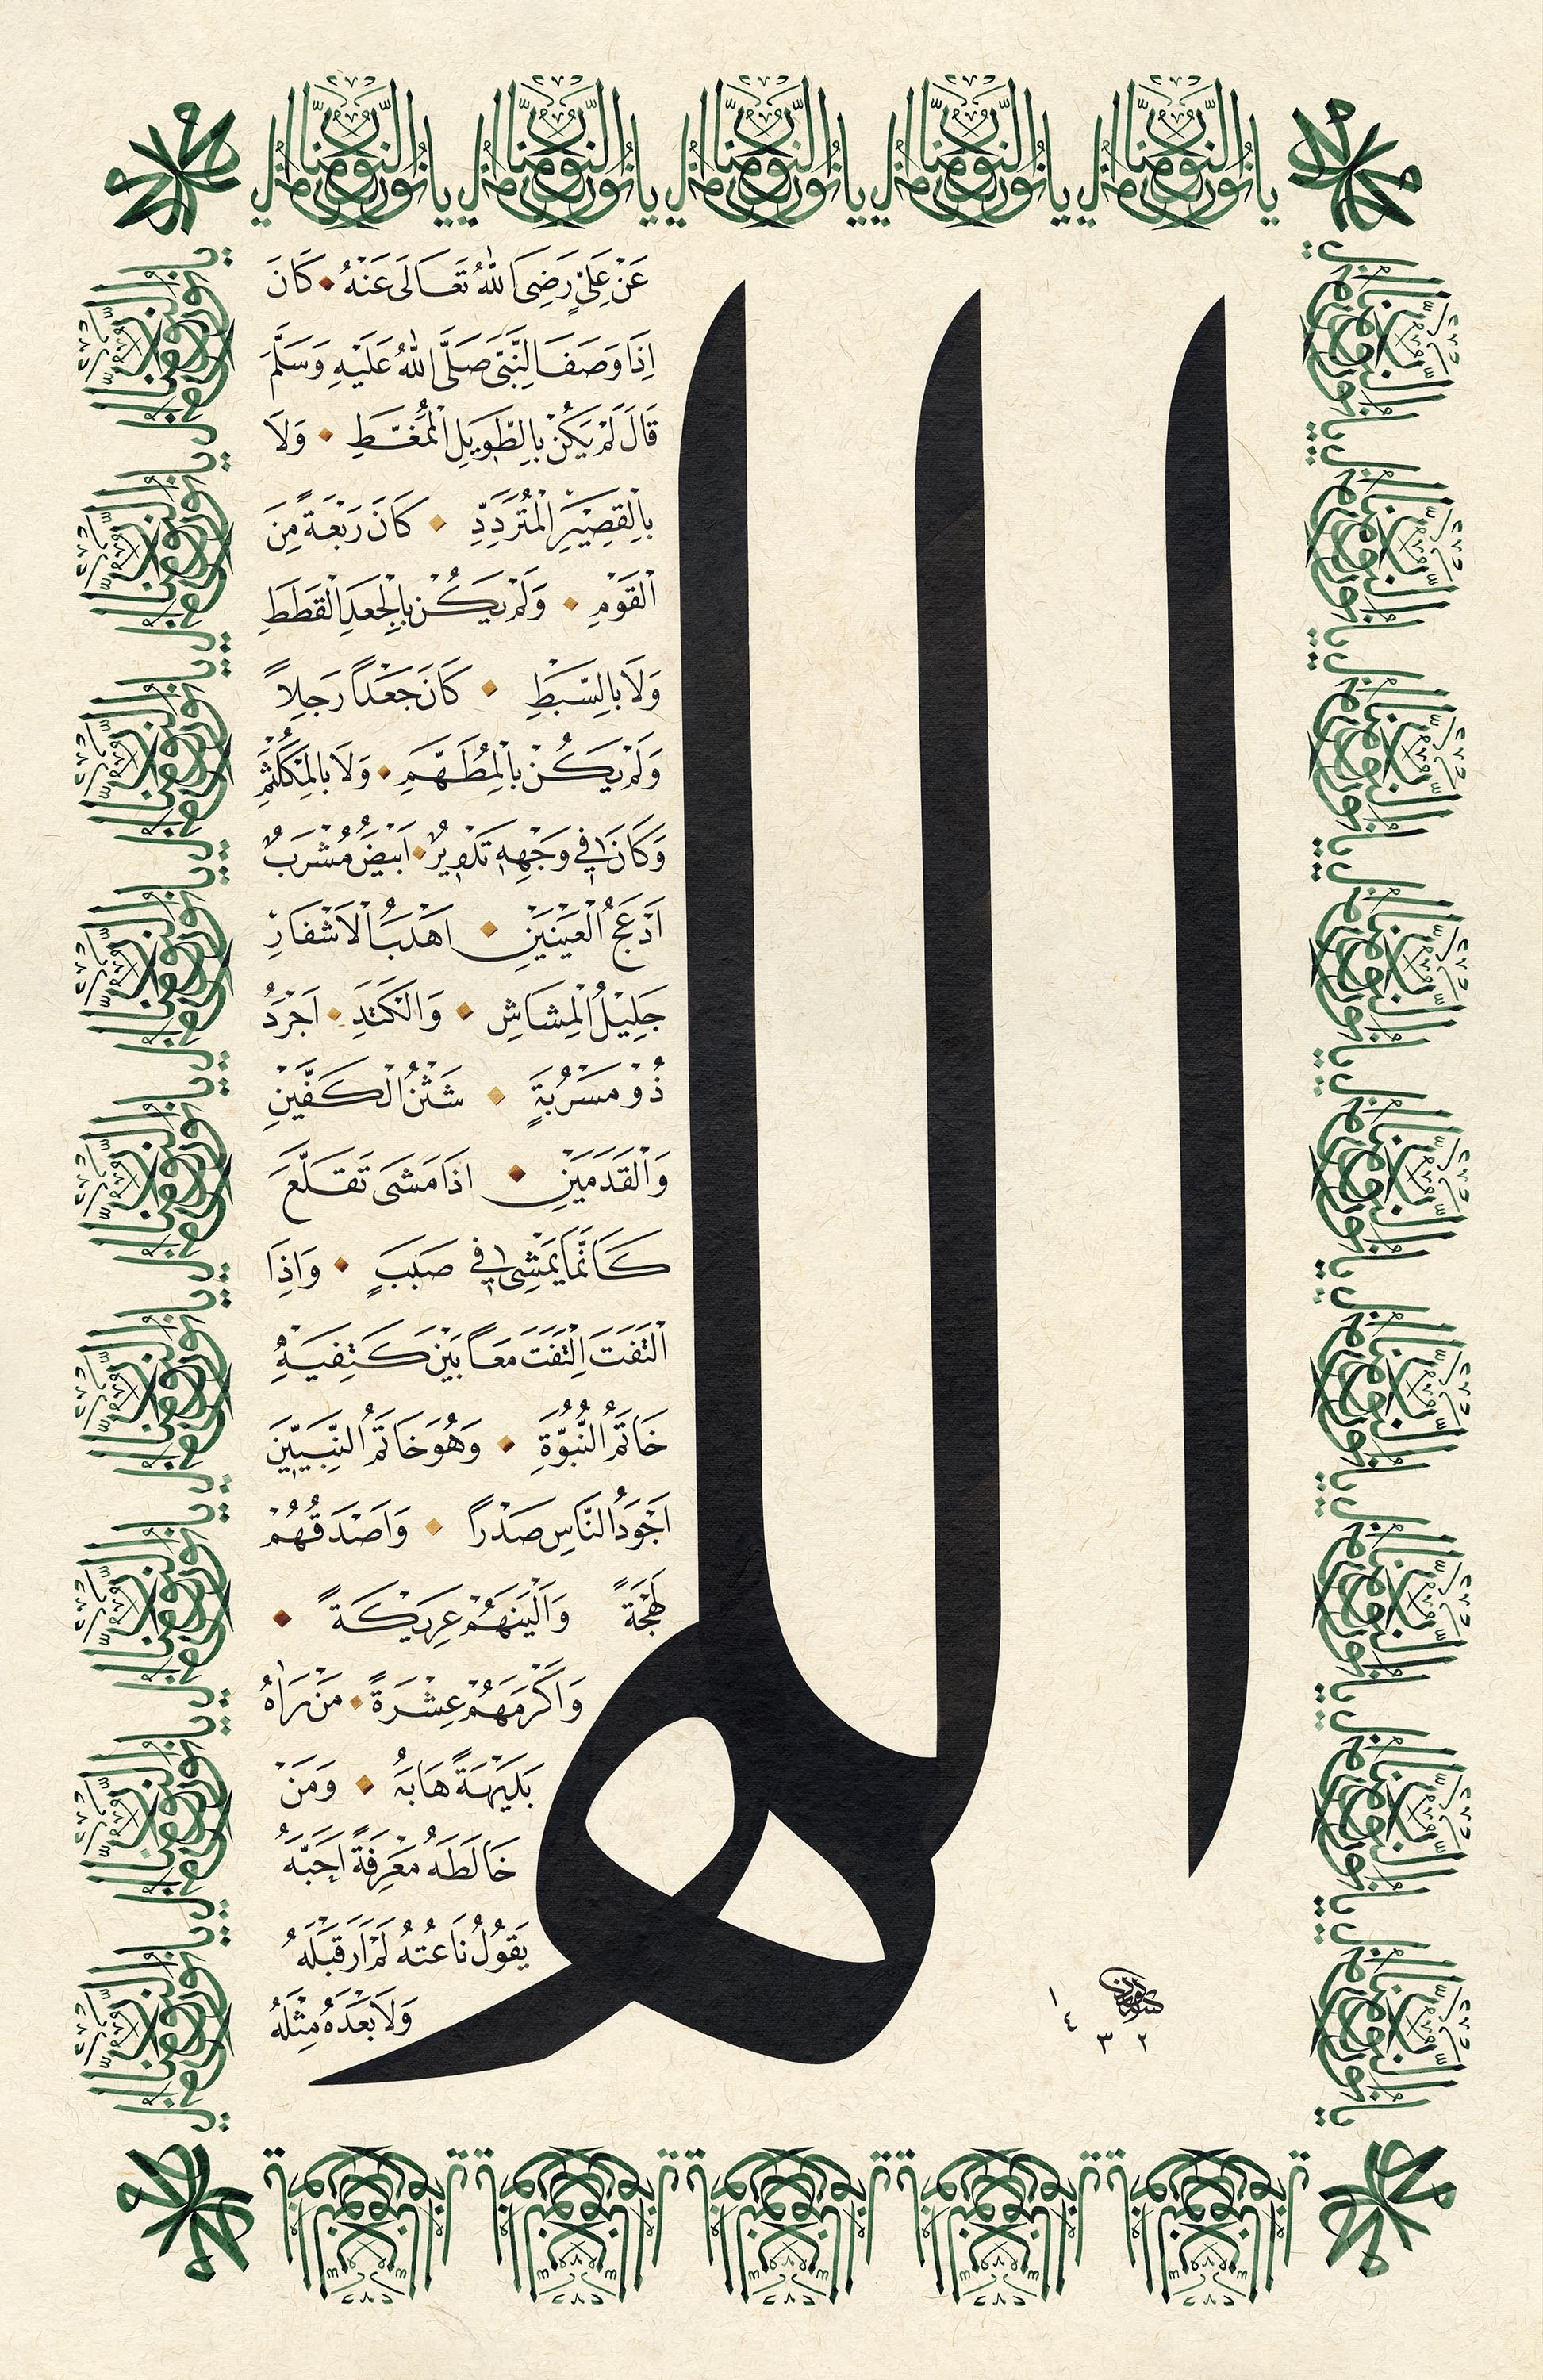 الله
عَنْ عَلِيٍّ رَضِيَ اللهُ تَعَالَى عَنْهُ كَانَ
اِذَا وَصَفَ النَّبِيَّ صَلَّى اللهُ عَلَيْهِ وَسَلَّمَ
قَالَ لَمْ يَكُنْ بِالطَّوِيلِ الْمُمَّغِطِ وَلَا
بِالْقَصِيرِ الْمُتَرَدِّدِ كَانَ رَبْعَةً مِنَ
الْقَوْمِ وَلَمْ يَكُنْ بِالْجَعْدِ الْقَطَطِ
وَلَا بِالسَّبْطِ كَانَ جَعْدًا رَجِلًا
وَلَمْ يَكُنْ بِالْمُطَهَّمِ وَلَا بِالْمُكَلْثَمِ
وَكَانَ فِي وَجْهِهِ تَدْوِيرٌ اَبْيَضُ مُشْرَبٌ
اَدْعَجُ الْعَيْنَيْنِ اَهْدَبُ الْاَشْفَارِ
جَلِيلُ الْمُشَاشِ وَالْكَتَدِ اَجْرَدُ
ذُو مَسْرُبَةٍ شَثْنُ الْكَفَّيْنِ
وَالْقَدَمَيْنِ اِذَا مَشَى تَقَلَّعَ
كَاَنَّمَا يَمْشِي فِي صَبَبٍ وَاِذَا
الْتَفَتَ اِلْتَفَتَ مَعًا بَيْنَ كَتِفَيْهِ
خَاتَمُ النُّبُوَّةِ وَهُوَ خَاتَمُ النَّبِيِّينَ
اَجْوَدُ النَّاسِ صَدْرًا وَاَصْدَقُهُمْ
لَهْجَةً وَاَلْيَنُهُمْ عَرِيكَةً
وَاَكْرَمُهُمْ عِشْرَةً مَنْ رَاٰهُ
بَدِيهَةً هَابَهُ وَمَنْ
خَالَطَهُ مَعْرِفَةً اَحَبَّهُ
يَقُولُ نَاعِتُهُ لَمْ اَرَ قَبْلَهُ
وَلَا بَعْدَهُ مِثْلَهُ
١٤٣٢